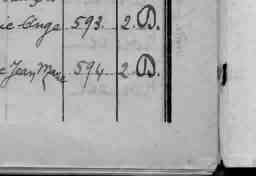 ie Ange 593. 2. D.
e Jean Marie 594 2 D.